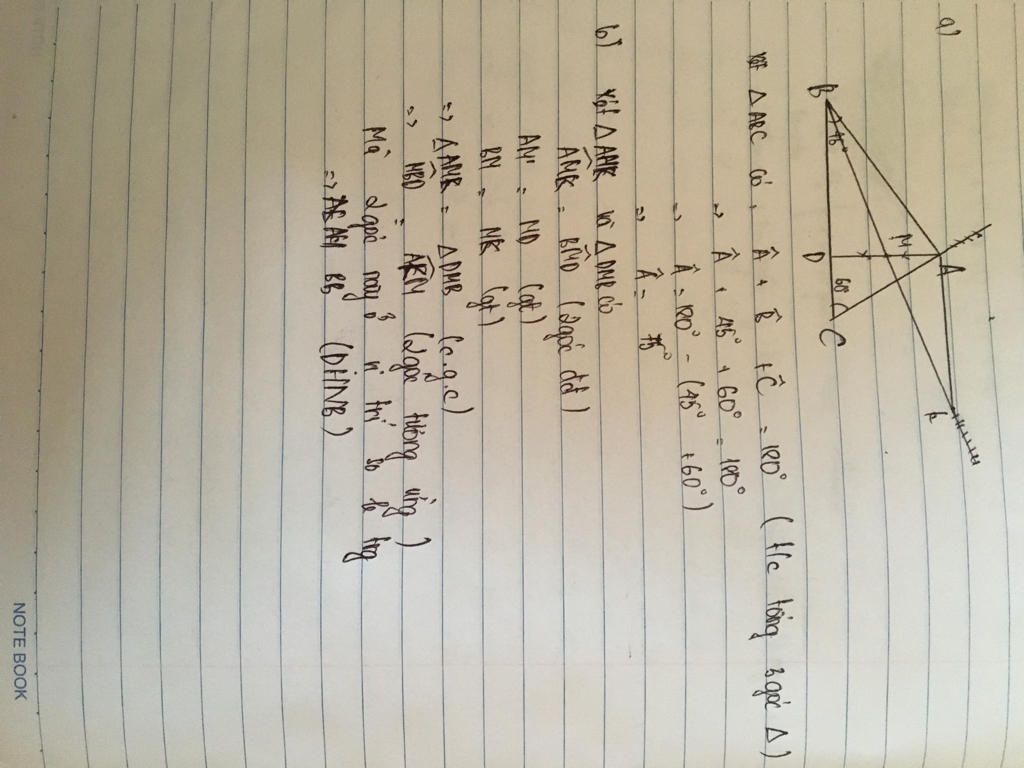 a)
A
M
B
45°
D
60
C
K
Xét △ABC có, Â + B̂ + Ĉ = 180° (t/c tổng 3 góc △)
=> Â + 45° + 60° = 180°
=> Â = 180° - (45° + 60°)
=> Â = 75°
b) Xét △AMK và △DMB có
AMK = BMD (2 góc đđ)
AM = MD (gt)
BM = MK (gt)
=> △AMK = △DMB (c.g.c)
=> MBD = AKM (2 góc tương ứng)
Mà 2 góc này ở vị trí so le
=> (ĐHNB)
NOTE BOOK